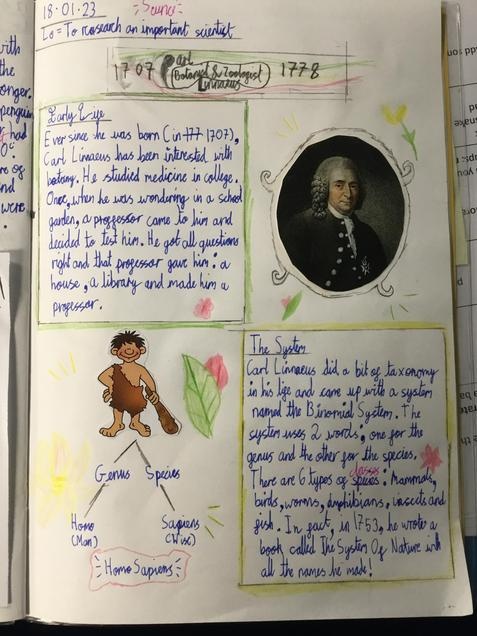 18.01.23
Science
Lo = To research an important scientist
1707 Carl 1778
(Botanist & Zoologist)
Linnaeus
Early Life
Ever since he was born (in 1707),
Carl Linnaeus has been interested with
botany. He studied medicine in college.
Once, when he was wondering in a school
garden, a proffessor came to him and
decided to test him. He got all questions
right and that professor gave him: a
house, a library and made him a
professor.
Genus Species
Homo Sapiens
(Man) (Wise)
Homo Sapiens
The System
Carl Linnaeus did a bit of taxonomy
in his life and came up with a system
named the Binomial System. The
system uses 2 words; one for the
genus and the other for the species.
classes
There are 6 types of species: Mammals,
birds, worms, amphibians, insects and
fish. In fact, in 1753, he wrote a
book called The System Of Nature with
all the names he made!